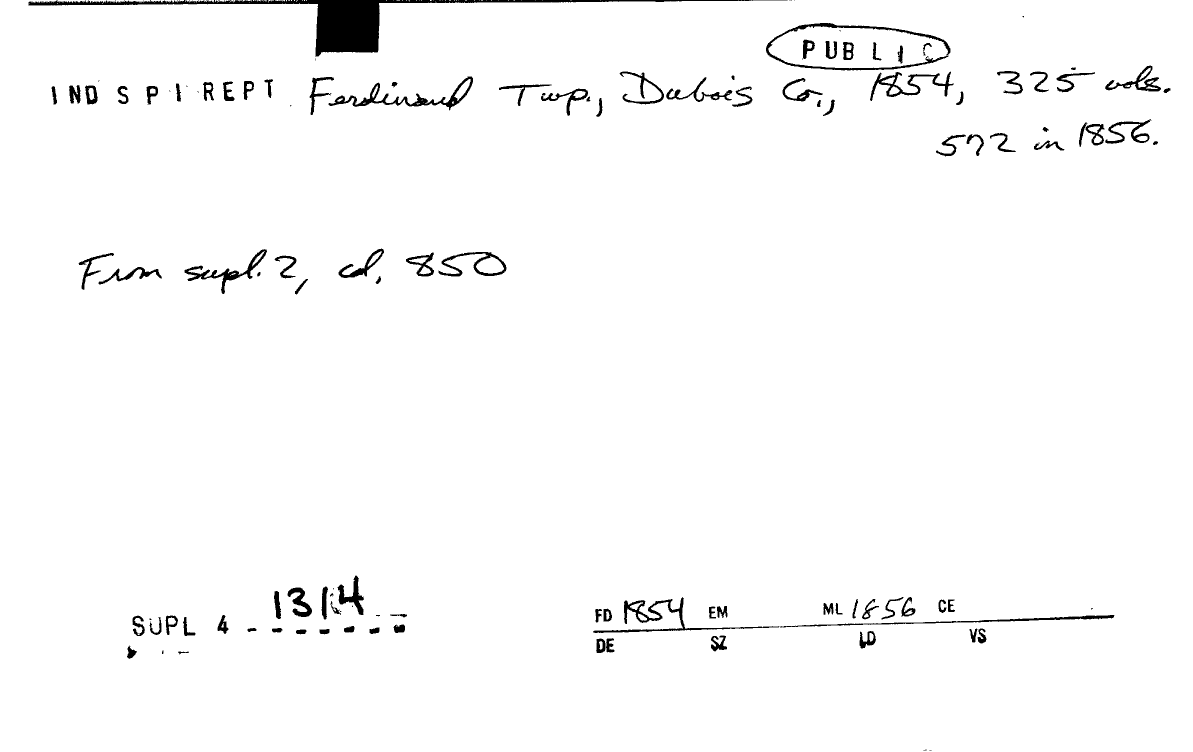 PUBLIC
IND SPI REPT Ferdinand Twp., Dubois Co., 1854, 325 vols.
572 in 1856.
From supl. 2, cd, 850
SUPL 4 - 1314
FD 1854 EM ML 1856 CE
DE SZ LD VS